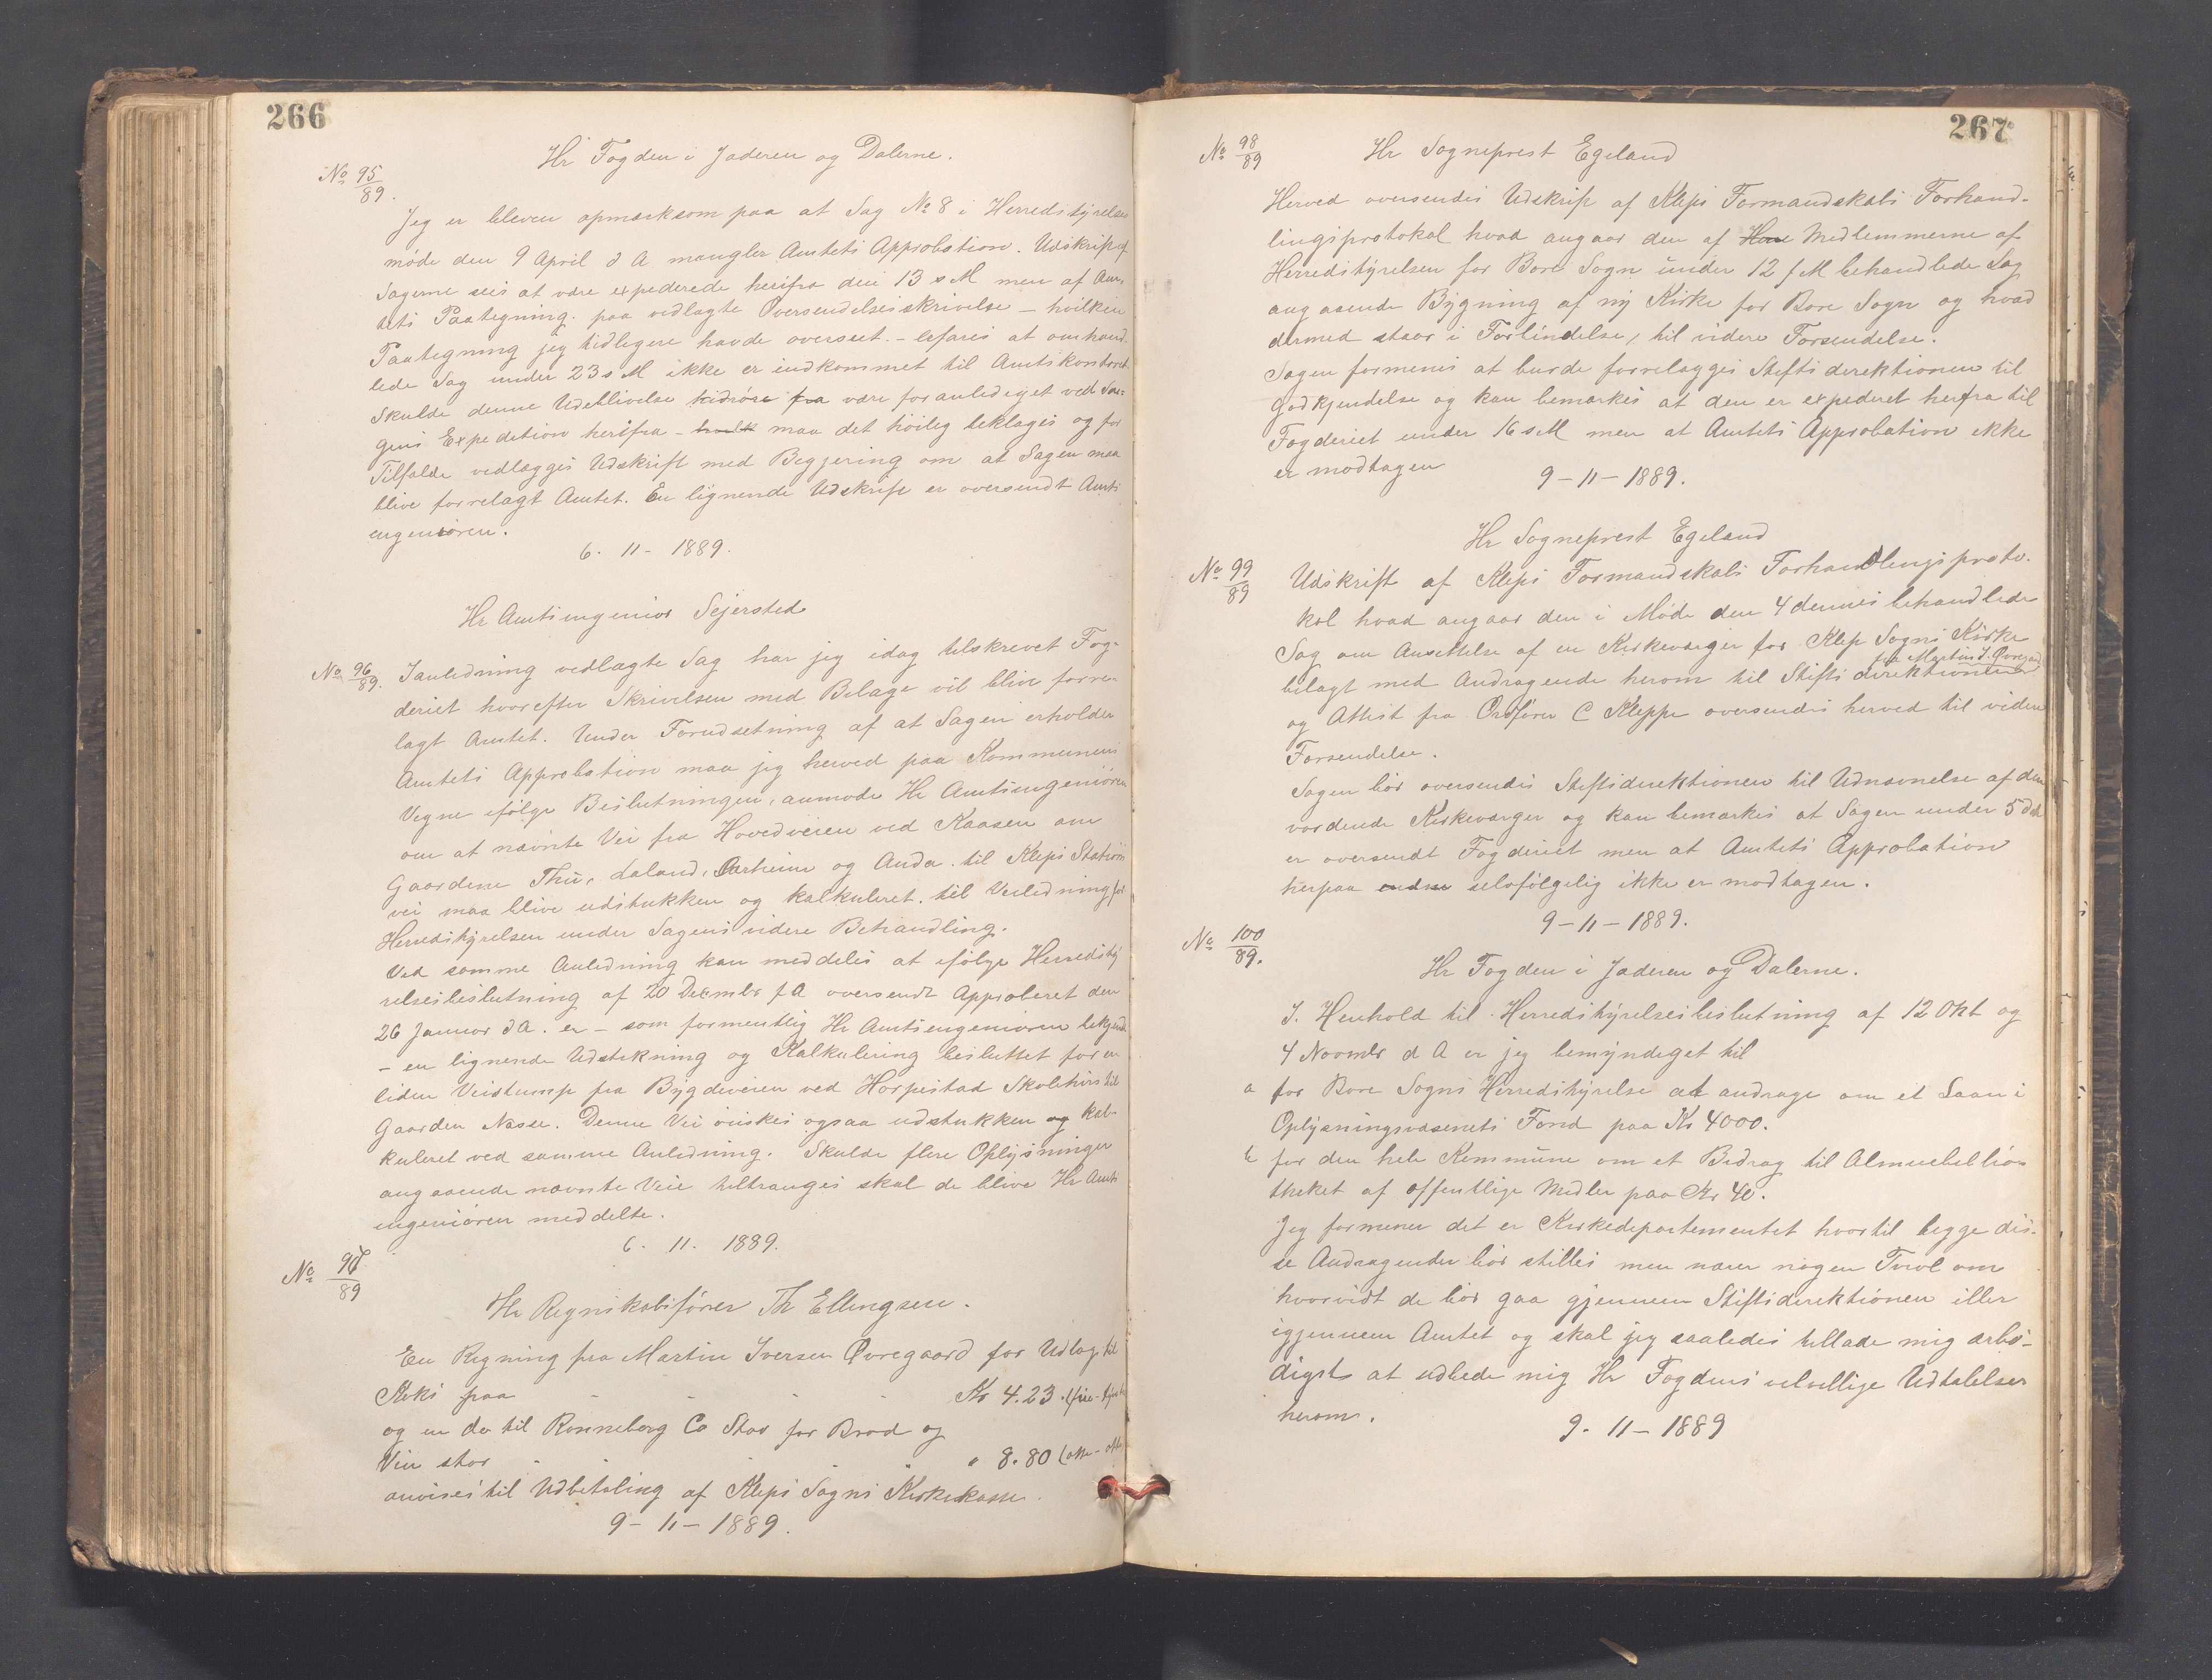 266
Hr Fogden i Jæderen og Dalerne.
No 95/89.
Jeg er bleven opmærksom paa at Sag No 8 i Herredstyrelses
møde den 9 April d A mangler Amtets Approbation. Udskrift af
Sagerne sees at være expederede herfra den 13 s M men af Am-
tets Paategning paa vedlagte Oversendelsesskrivelse – hvilken
Paategning jeg tidligere havde overseet. – erfares at omhand-
lede Sag under 23 s M ikke er indkommet til Amtskontoret
Skulde denne Udeblivelse være foranlediget ved Sa-
gens Expedition herfra – maa det höilig beklages og for
Tilfælde vedlægges Udskrift med Begjering om at Sagen maa
blive forrelagt Amtet. En lignende Udskrift er oversendt Amts
engeniören.
6. 11 - 1889.
Hr Amtsingeniør Sejersted
No 96/89.
I anledning vedlagte Sag har jeg idag tilskrevet Fog-
deriet hvorefter Skrivelsen med Bilage vil blive forre-
lagt Amtet. Under Forudsetning af at Sagen erholder
Amtets Approbation maa jeg herved paa Kommunens
Vegne ifølge Beslutningen, anmode Hr Amtsingeniøren
om at nævnte Vei fra Hovedveien ved Kaasen om
Gaardene Thu, Laland, Aarheim og Anda til Kleps Station
vei maa blive udstukken og kalkuleret til Veiledning for
Herredstyrelsen under Sagens videre Behandling.
Ved samme Anledning kan meddeles at ifølge Herredsty
relsesbeslutning af 20 Decembr f A oversendt Approberet den
26 Januar d A. er – som formentlig Hr Amtsengeniøren bekjend
– en lignende Udstikning og Kalkulering besluttet for en
liden Veistump fra Bygdeveien ved Horpestad Skolehus til
Gaarden Næsse. Denne Vei ønskes ogsaa udstukken og kal-
kuleret ved samme Anledning. Skulde flere Oplysninger
angaaende nævnte Veie tiltrænges skal de blive Hr Amts
ingeniøren meddelte.
6. 11. 1889.
No 97/89
Hr Regnskabsfører Th Ellingsen.
En Regning fra Martin Iversen Øvregaard for Udlæg til
Keks paa - - - - Kr 4.23.
og en do til Ronneberg Co Stav for Brød og
Vin stor - - - - " 8.80
anvises til Udbetaling af Kleps Sogns Kirkekasse.
9 – 11 – 1889.
267
No 98/89
Hr Sogneprest Egeland
Herved oversendes Udskrift af Kleps Formandskabs Forhand-
lingsprotokol hvad angaar den af Medlemmerne af
Herredstyrelsen for Bore Sogn under 12 f M behandlede Sag
angaaende Bygning af ny Kirke for Bore Sogn og hvad
dermed staar i Forbindelse, til videre Forsendelse.
Sagen formenes at burde forrelægges Stiftsdirektionen til
Godkjendelse og kan bemærkes at den er expederet herfra til
Fogderiet under 16 s M men at Amtets Approbation ikke
er modtagen
9 – 11 – 1889.
Hr Sogneprest Egeland
No 99/89
Udskrift af Kleps Formandskabs Forhandlingsproto-
kol hvad angaar den i Møde den 4 dennes behandlede
Sag om Ansettelse af en Kirkeværger for Klep Sogns Kirke
fra Martin I. Øvregaard
bilagt med Andragende herom til Stiftsdirektionen
og Attest fra Ordfører C Kleppe oversendes herved til videre
Forsendelse.
Sagen bör oversendes Stiftsdirektionen til Udnævnelse af den
vordende Kirkeværger og kan bemærkes at Sagen under 5 ds
er oversendt Fogderiet men at Amtets Approbation
herpaa selvfölgelig ikke er modtagen.
9 – 11 – 1889.
No 100/89.
Hr Fogden i Jæderen og Dalerne.
I. Henhold til Herredstyrelsesbeslutning af 12 Okt og
4 Novmbr d A er jeg bemyndiget til
a for Bore Sogns Herredstyrelse at andrage om et Laan i
Oplysningsvæsenets Fond paa Kr 4000.
b for den hele Kommune om et Bidrag til Almuebiblio-
theket af offentlige Midler paa Kr 40.
Jeg formener det er Kirkedepartementet hvortil begge dis-
se Andragender bör stilles men nærer nogen Tvivl om
hvorvidt de bör gaa gjennem Stiftsdirektionen eller
igjennem Amtet og skal jeg saaledes tillade mig ærbö-
digst at udbede mig Hr Fogdens velvillige Udtalelser
herom.
9. 11 – 1889